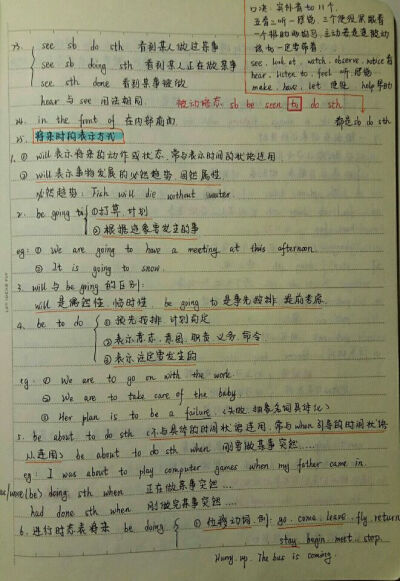 口决:宾补省 to 11个.
五看三听一感觉, 三个使役紧跟着
一个帮助
该 to 一定要带着
see, look at, watch, observe, notice 看
hear, listen to, feel 听, 感觉
make, have, let 使役 help 帮助
都是 sb do sth
23. see sb do sth 看到某人做过某事
see sb doing sth 看到某人正在做某事
see sth done 看到某事被做
hear 与 see 用法相同.
被动语态. sb be seen to do sth
24. in the front of 在内部前面
25. 将来时的表示方式
1. ① will 表示将来的动作或状态, 常与表示时间的状语连用
② will 表示事物发展的必然趋势 固然属性
必然趋势: Fish will die without water.
2. be going to ①打算, 计划
②根据迹象要发生的事
eg: ① We are going to have a meeting at this afternoon
② It is going to snow.
3. will 与 be going 的区别:
will 是偶然性, 临时性, be going to 是事先按排 提前考虑.
4. be to do ①预先按排, 计划约定
②表示意志, 意图, 职责 义务 命令
③表示注定要发生的
eg: ① We are to go on with the work.
② We are to take care of the baby.
③ Her plan is to be a failure. (失败, 抽象名词具体化)
5. be about to do sth (不与具体的时间状语连用, 常与 when 引导的时间状语
从连用) be about to do sth when 刚要做某事突然……
eg: I was about to play computer games when my father came in.
was/were (be) doing sth when 正在做某事突然…
had done sth when 刚做完某事突然…
6. 进行时态表将来 be doing ①位移动词. 例: go, come, leave, fly, return
stay, begin, meet, step.
Hurry up. The bus is coming